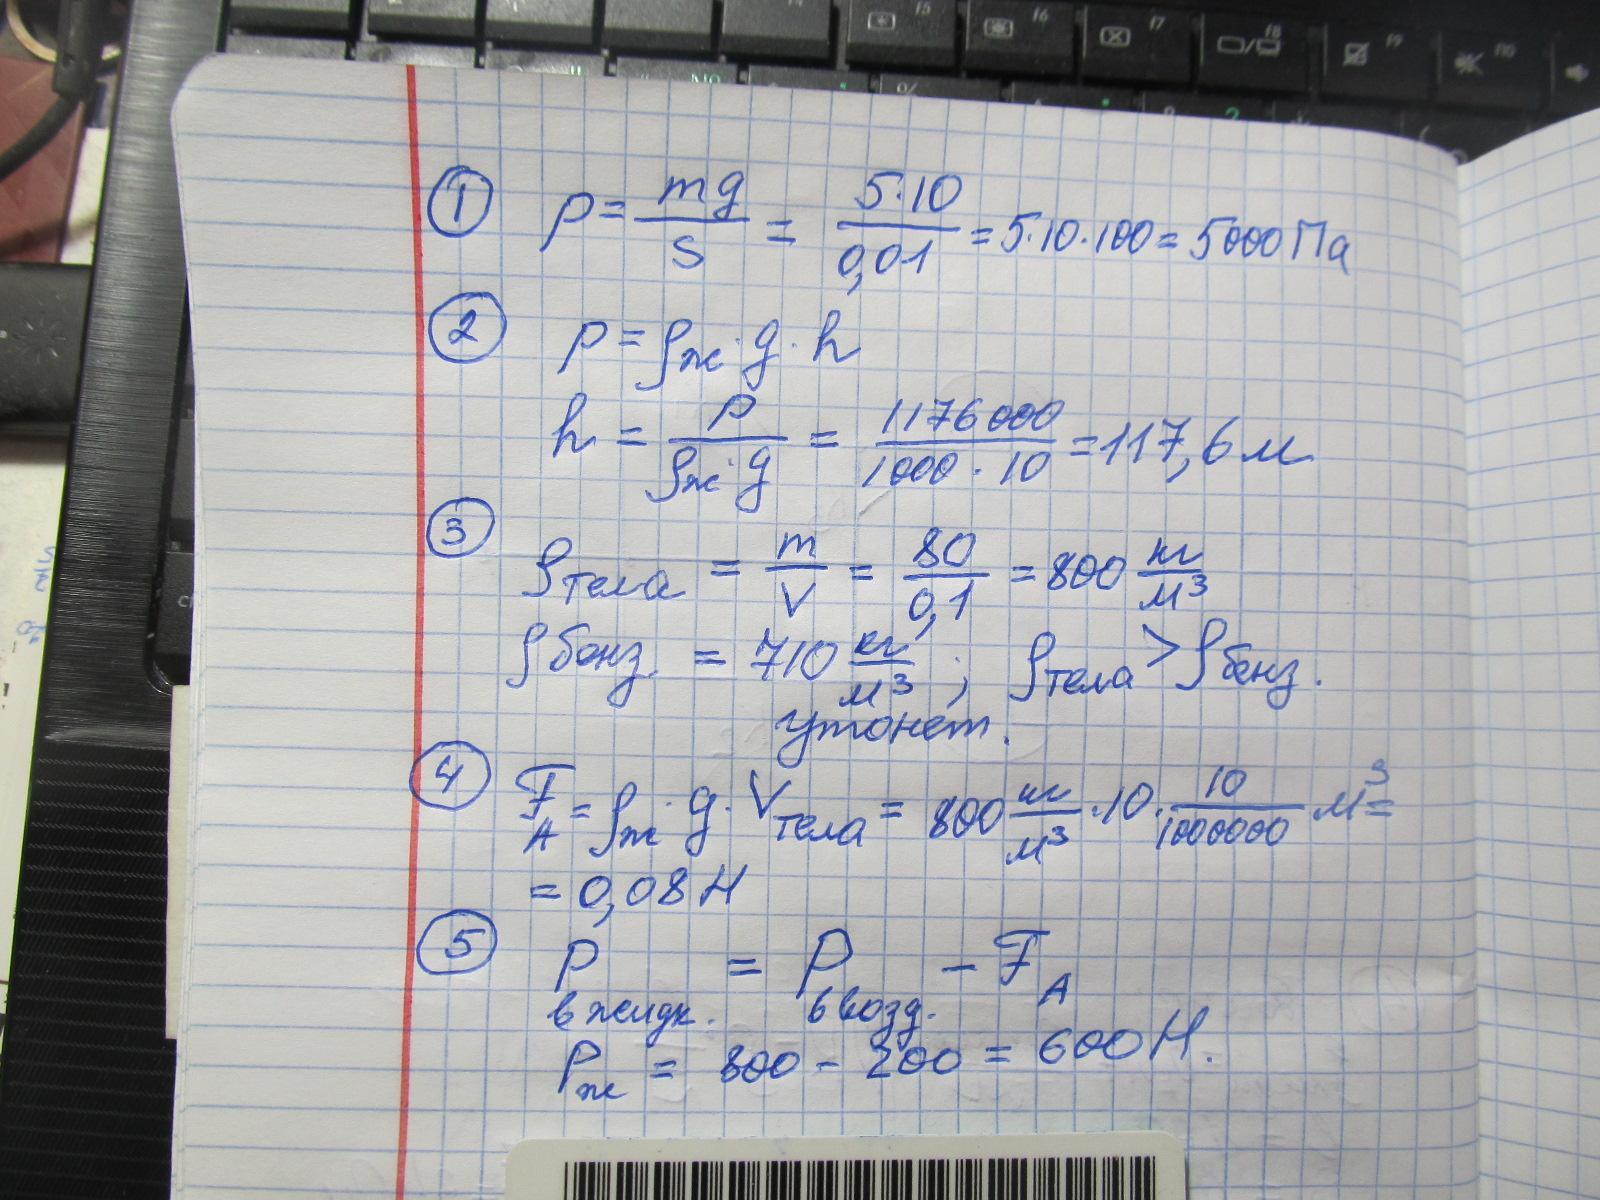 ① p = mg/S = 5·10/0,01 = 5·10·100 = 5000 Па
② p = ρж·g·h
h = p/(ρж·g) = 1176000/(1000·10) = 117,6 м
③ ρтела = m/V = 80/0,1 = 800 кг/м³
ρбенз. = 710 кг/м³; ρтела > ρбенз.
утонет.
④ FA = ρж·g·Vтела = 800 кг/м³·10·10/1000000 м³ =
= 0,08 Н
⑤ P в жидк. = P в возд. − FA
Pж = 800 − 200 = 600 Н.
f5 f6 f7 f8 f9 f10